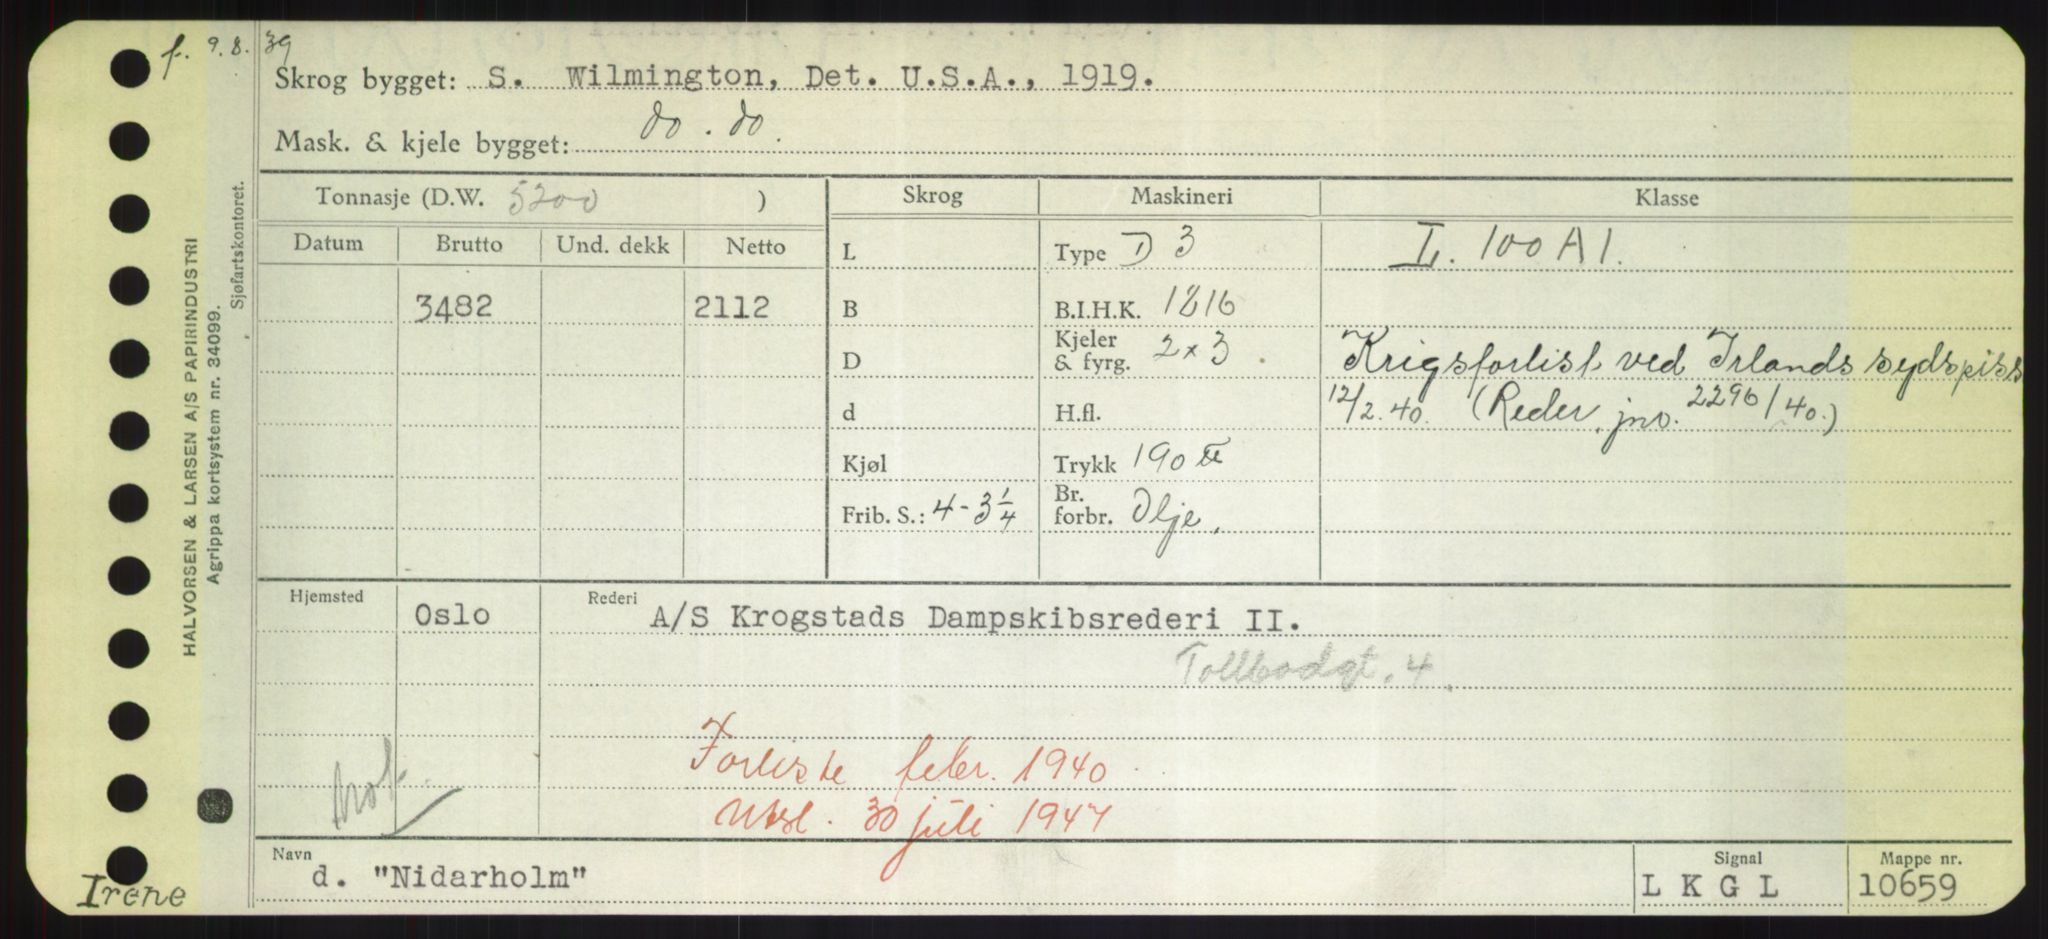 f. 9.8.39
Skrog bygget: S. Wilmington, Det. U.S.A., 1919.
Mask. & kjele bygget: do. do.
Tonnasje (D.W. 5200 ) Skrog Maskineri Klasse
Datum Brutto Und. dekk Netto L Type D 3 L. 100 A 1.
3482 2112 B B.I.H.K. 1216
D Kjeler & fyrg. 2 x 3 Krigsforlist ved Irlands sydspiss
d H.fl. 12/2.40. (Reder. jno. 2296/40.)
Kjøl Trykk 190 tt
Frib. S.: 4-3 1/4 Br. forbr. Olje.
Hjemsted Oslo Rederi A/S Krogstads Dampskibsrederi II.
Tollbodgt. 4.
Forliste febr. 1940
Utsl. 30 juli 1947
Navn d. "Nidarholm" Signal L K G L Mappe nr. 10659
Irene
HALVORSEN & LARSEN A/S PAPIRINDUSTRI
Agrippa kortsystem nr. 34099.
Sjøfartskontoret.